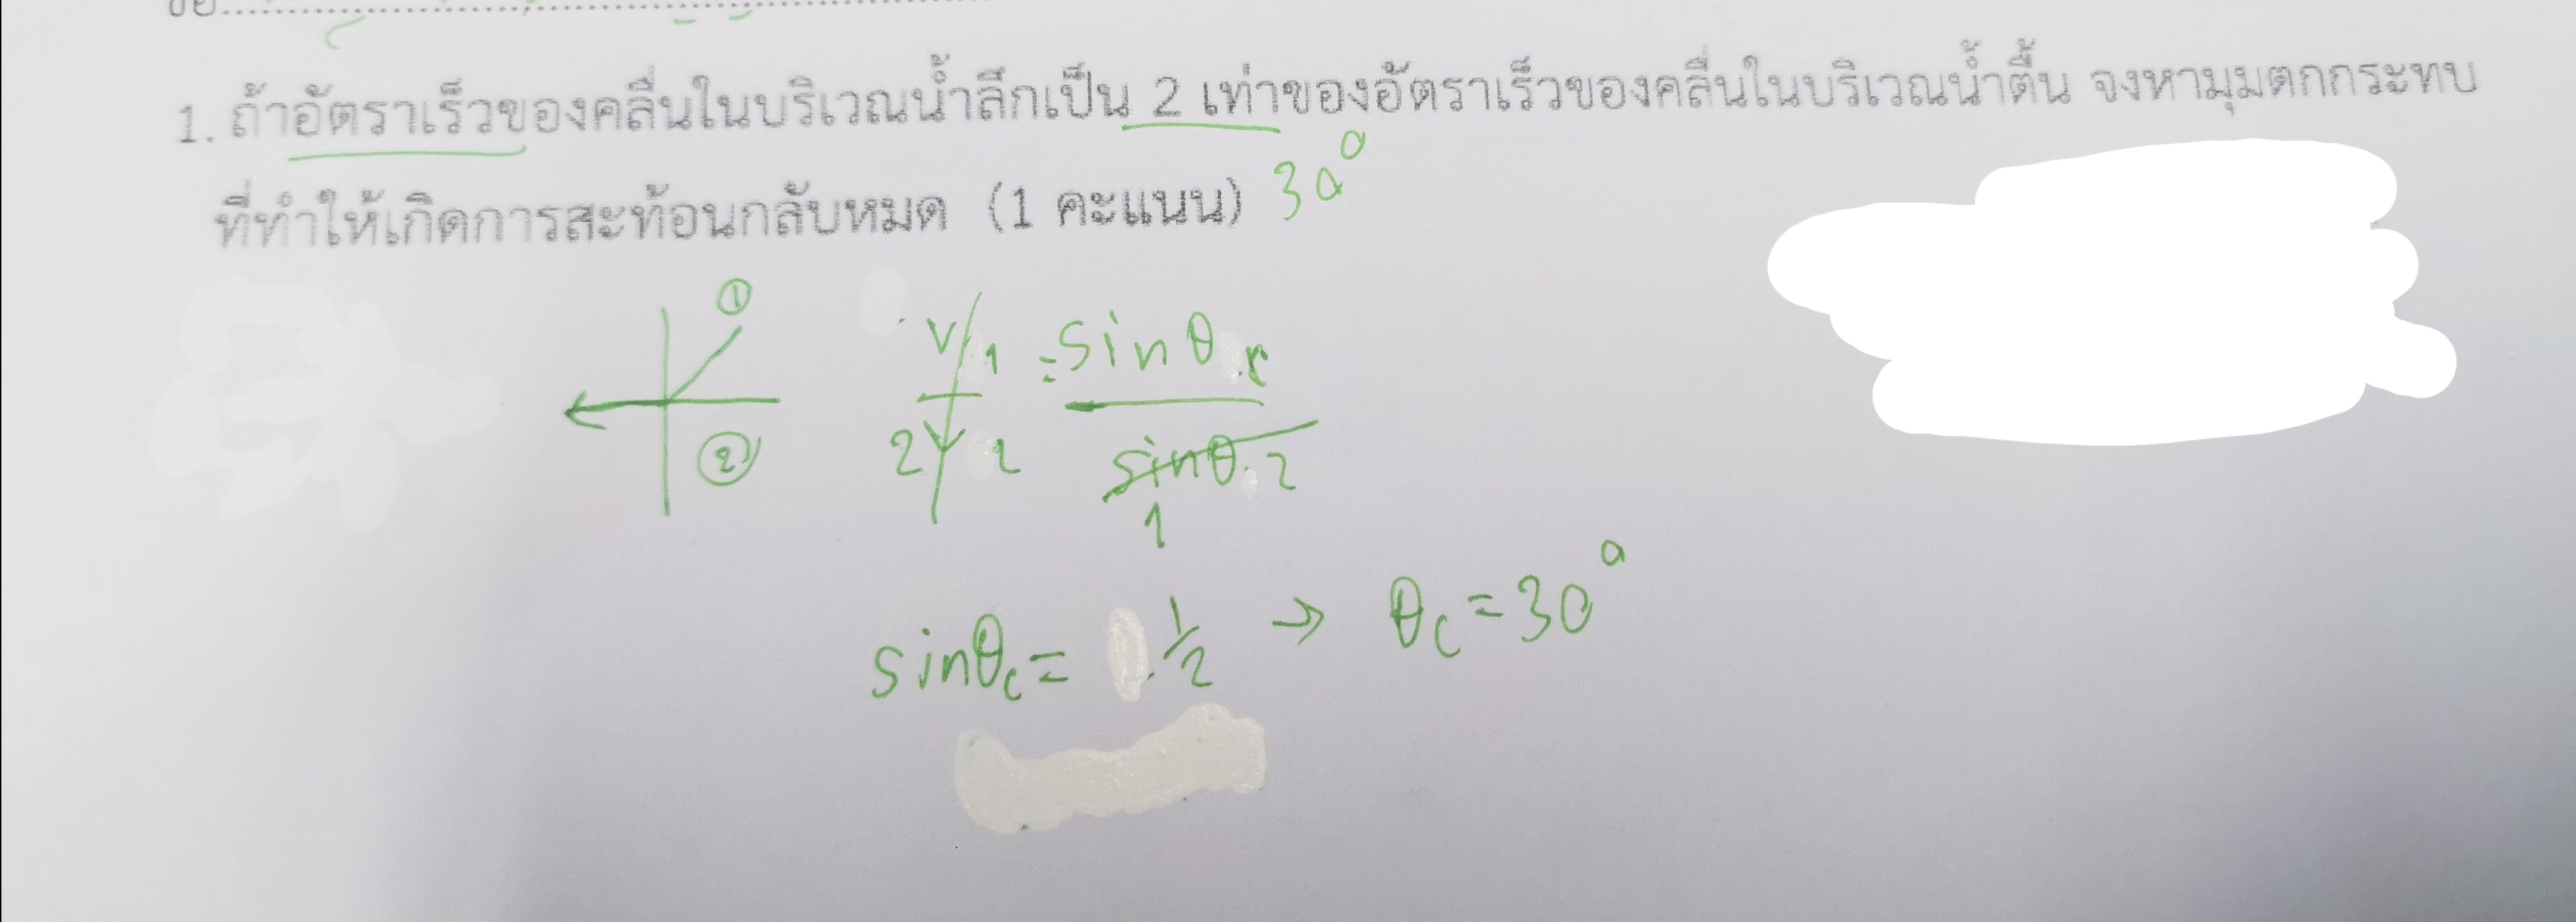 1. ถ้าอัตราเร็วของคลื่นในบริเวณน้ำลึกเป็น 2 เท่าของอัตราเร็วของคลื่นในบริเวณน้ำตื้น จงหามุมตกกระทบ
ที่ทำให้เกิดการสะท้อนกลับหมด (1 คะแนน) 30°
① V1 = sinθ
② 2V2 sinθ2
1
sinθc = 1/2 → θc = 30°